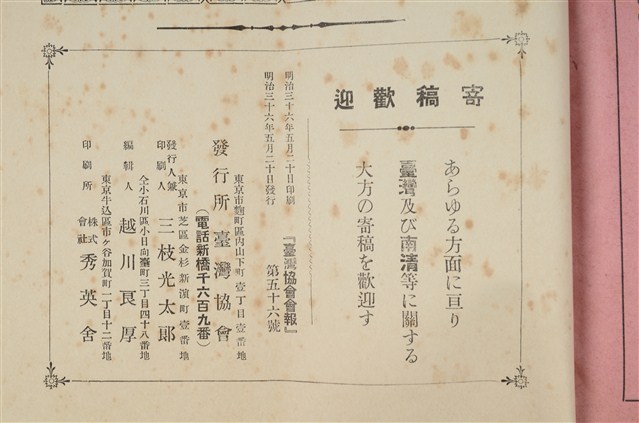 寄稿歡迎
あらゆる方面に亘り
臺灣及び南清等に關する
大方の寄稿を歡迎す
『臺灣協會會報』
第五十六號
明治三十六年五月二十日印刷
明治三十六年五月二十日發行
東京市麴町區內山下町壹丁目壹番地
發行所 臺灣協會
(電話新橋千六百九番)
東京市芝區金杉新濱町壹番地
發行人兼印刷人 三枝光太郎
仝小石川區小日向臺町三丁目四十八番地
編輯人 越川良厚
東京牛込區市ヶ谷加賀町一丁目十二番地
印刷所 株式會社 秀英舍